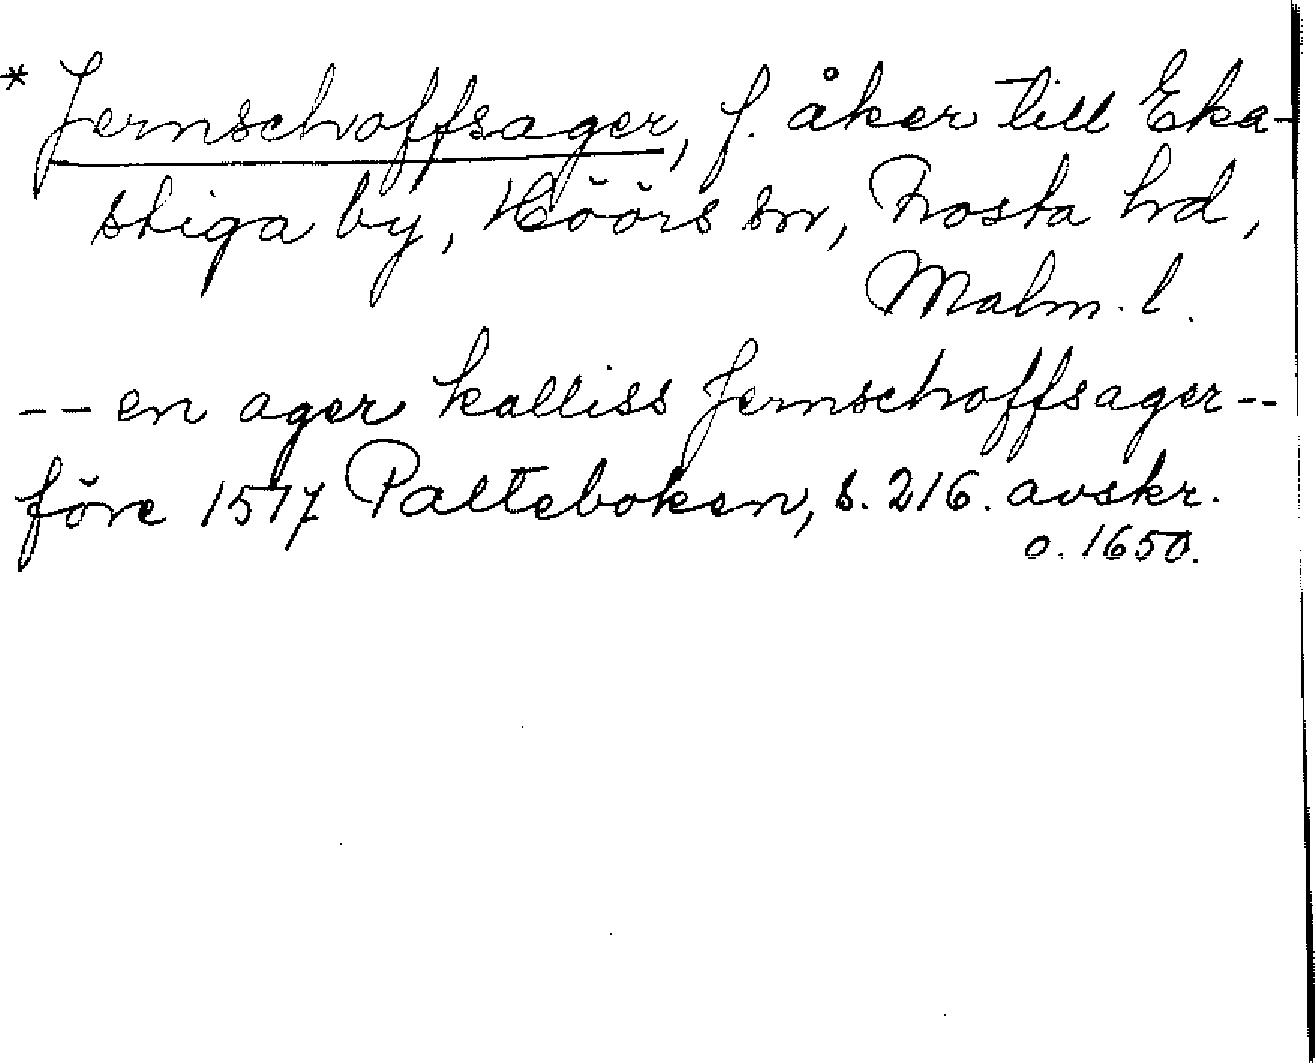 * Jernschoffsager, f. åker till Eka-
stiga by, Höörs sn, Frosta hd,
Malm. l.
-- en ager kalliss Jernschoffsager --
före 1517 Palteboken, s. 216. avskr.
o. 1650.